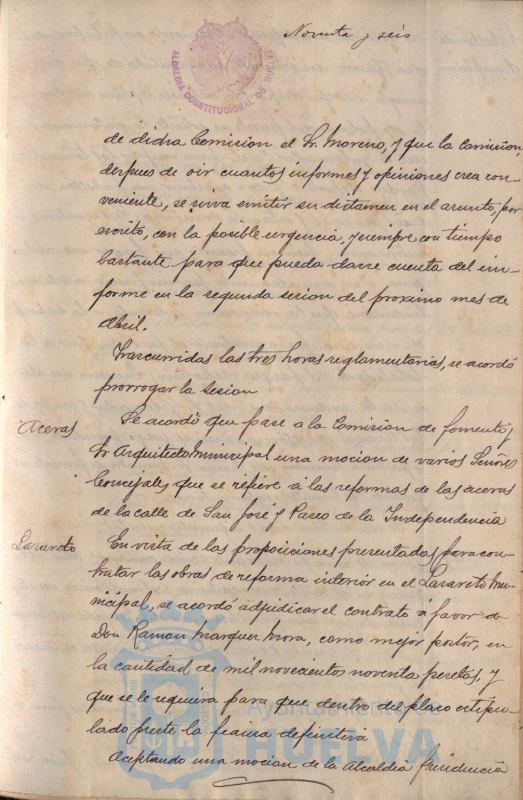 Noventa y seis
ALCALDIA CONSTITUCIONAL DE HUELVA
de dicha Comision el Sr. Moreno, y que la comision,
despues de oir cuantos informes y opiniones crea con-
veniente, se sirva emitir su dictamen en el asunto, por
escrito, con la posible urgencia, y siempre con tiempo
bastante para que pueda darse cuenta del in-
forme en la segunda sesion del proximo mes de
Abril.
Trascurridas las tres horas reglamentarias, se acordó
prorrogar la sesion
Aceras
Se acordó que pase a la Comision de fomento y
Sr Arquitecto municipal una mocion de varios Señores
Concejales, que se refiere á las reformas de las aceras
de la calle de San José y Paseo de la Independencia
Lazareto
En vista de las proposiciones presentadas para con-
tratar las obras de reforma interior en el Lazareto mu-
nicipal, se acordó adjudicar el contrato á favor de
Don Ramon Marquez Mora, como mejor postor, en
la cantidad de mil novecientos noventa pesetas, y
que se le requiera para que dentro del plazo estipu-
lado preste la fianza definitiva
Aceptando una mocion de la Alcaldia Presidencia
Ayuntamiento
HUELVA